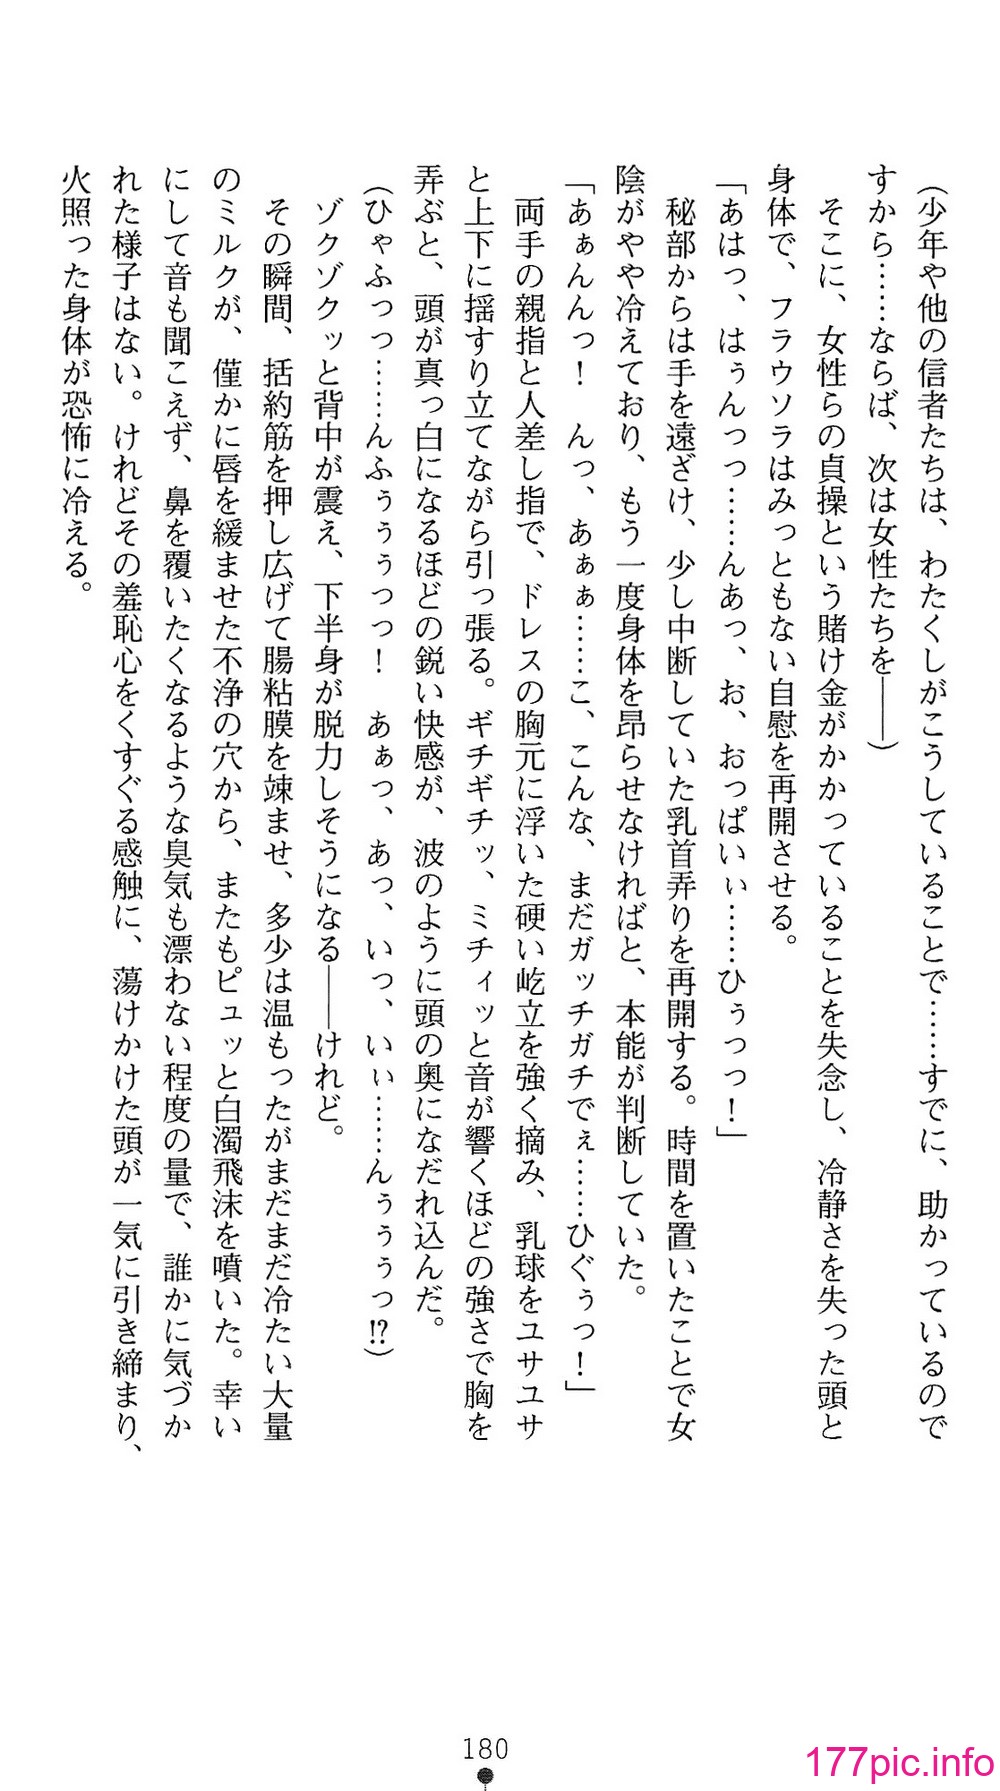 (少年や他の信者たちは、わたくしがこうしていることで……すでに、助かっているので
すから……ならば、次は女性たちを――)
そこに、女性らの貞操という賭け金がかかっていることを失念し、冷静さを失った頭と
身体で、フラウソラはみっともない自慰を再開させる。
「あはっ、はぅんっっ……んあっ、お、おっぱいぃ……ひぅっっ！」
秘部からは手を遠ざけ、少し中断していた乳首弄りを再開する。時間を置いたことで女
陰がやや冷えており、もう一度身体を昂らせなければと、本能が判断していた。
「あぁんんっ！　んっ、あぁぁ……こ、こんな、まだガッチガチでぇ……ひぐぅっ！」
両手の親指と人差し指で、ドレスの胸元に浮いた硬い屹立を強く摘み、乳球をユサユサ
と上下に揺すり立てながら引っ張る。ギチギチッ、ミチィッと音が響くほどの強さで胸を
弄ぶと、頭が真っ白になるほどの鋭い快感が、波のように頭の奥になだれ込んだ。
(ひゃふっっ……んふぅぅぅっっ！　あぁっ、あっ、いっ、いぃ……んぅぅぅっ!?)
ゾクゾクッと背中が震え、下半身が脱力しそうになる――けれど。
その瞬間、括約筋を押し広げて腸粘膜を竦ませ、多少は温もったがまだまだ冷たい大量
のミルクが、僅かに唇を緩ませた不浄の穴から、またもピュッと白濁飛沫を噴いた。幸い
にして音も聞こえず、鼻を覆いたくなるような臭気も漂わない程度の量で、誰かに気づか
れた様子はない。けれどその羞恥心をくすぐる感触に、蕩けかけた頭が一気に引き締まり、
火照った身体が恐怖に冷える。
180
177pic.info